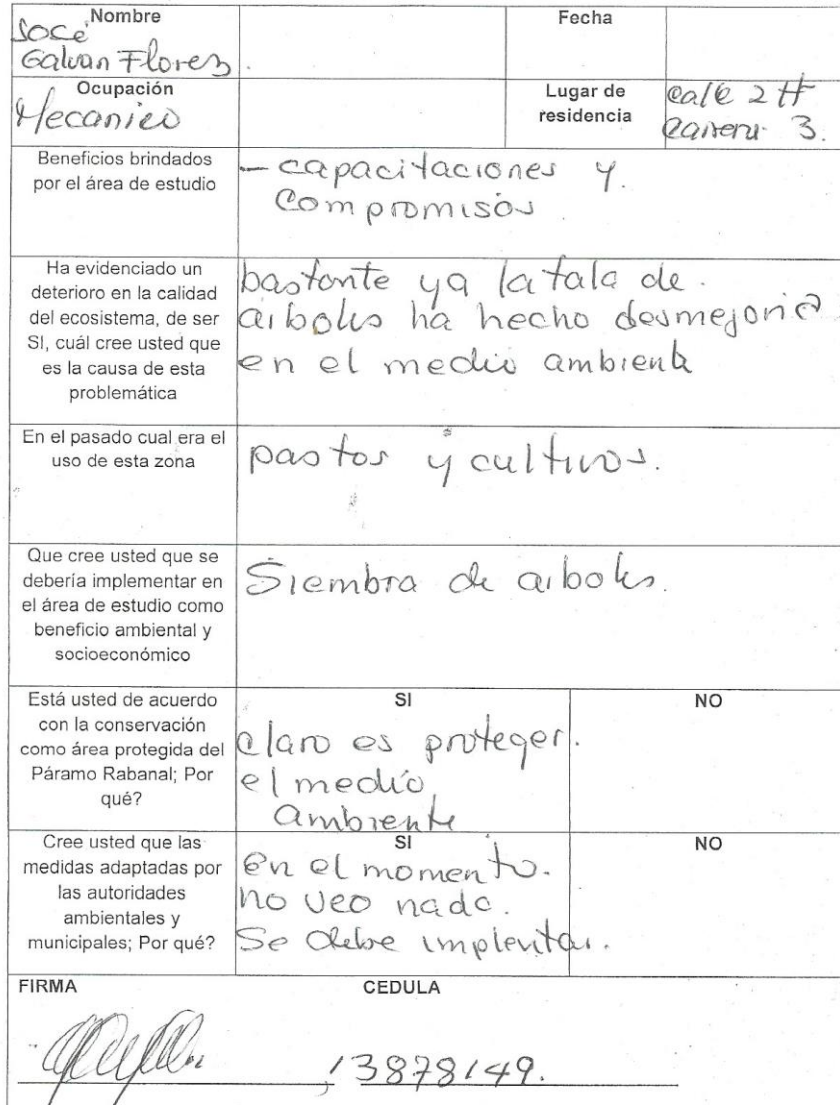 Nombre
Fecha
José
Galvan Florez
Ocupación
Mecanico
Lugar de
residencia
calle 2 #
Carrera 3.
Beneficios brindados
por el área de estudio
- capacitaciones y
Compromisos
Ha evidenciado un
deterioro en la calidad
del ecosistema, de ser
SI, cuál cree usted que
es la causa de esta
problemática
bastante ya la tala de
arboles ha hecho desmejoria
en el medio ambiente
En el pasado cual era el
uso de esta zona
pastos y cultivos.
Que cree usted que se
debería implementar en
el área de estudio como
beneficio ambiental y
socioeconómico
Siembra de arboles.
Está usted de acuerdo
con la conservación
como área protegida del
Páramo Rabanal; Por
qué?
SI
NO
claro es proteger.
el medio
Ambiente
Cree usted que las
medidas adaptadas por
las autoridades
ambientales y
municipales; Por qué?
SI
NO
en el momento.
no veo nada.
Se debe implentar.
FIRMA
CEDULA
13878149.